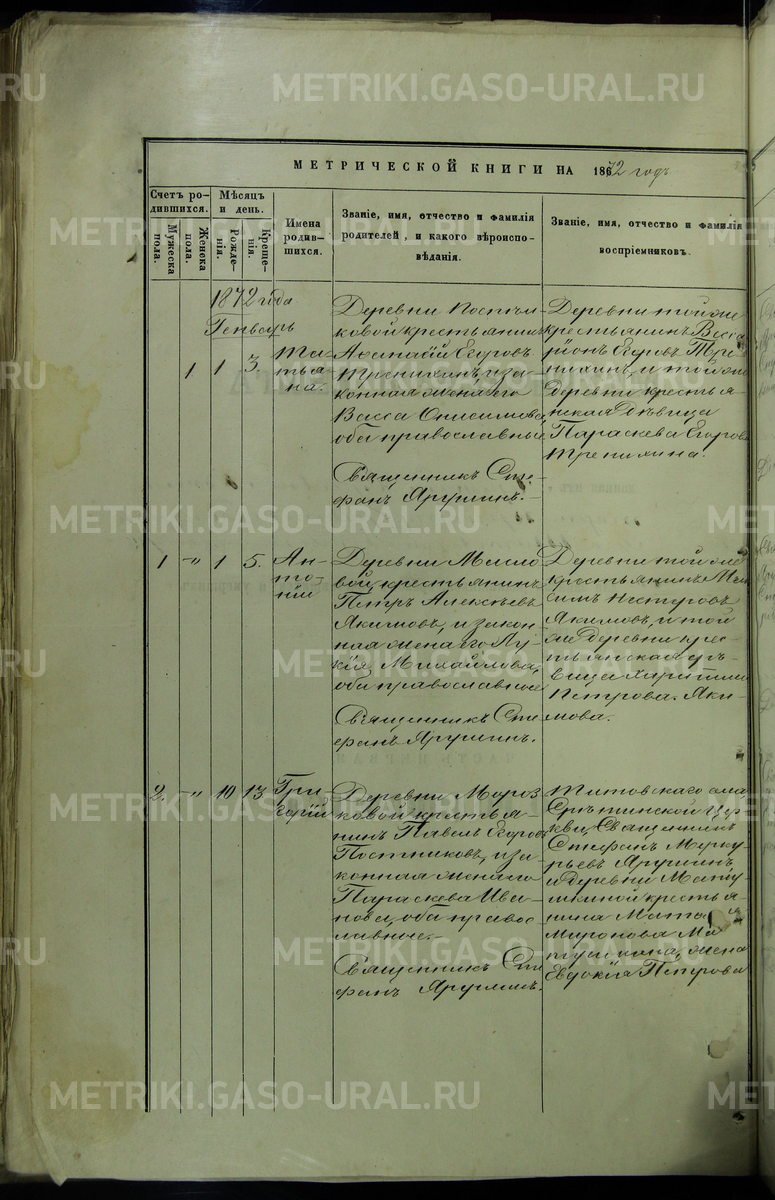 METRIKI.GASO-URAL.RU
МЕТРИЧЕСКОЙ КНИГИ НА 1872 годъ
Счетъ ро-
дившихся.
Мужеска
пола.
Женска
пола.
Мѣсяцъ
и день.
Рожде-
нія.
Креще-
нія.
Имена
родив-
шихся.
Званіе, имя, отчество и фамилія
родителей, и какого вѣроиспо-
вѣданія.
Званіе, имя, отчество и фамилія
воспріемниковъ.
1872 года
Генварь
1 1 3.
Та-
тья-
на.
Деревни
ковой крестьянинъ
Егоровъ
и за-
конная жена его
Васса Онисимова,
оба православные
Священникъ Сте-
фанъ
Деревни той же
крестьянинъ Висса-
ріонъ Егоровъ
и той же
деревни крестья-
нская дѣвица
Параскева Егорова
1 -"- 1 5.
Ан-
то-
ній
Деревни Масло-
вой крестьянинъ
Петръ Алексѣевъ
Якимовъ, и закон-
ная жена его Лу-
кія Михайлова,
оба православное
Священникъ Сте-
фанъ
Деревни той же
крестьянинъ Мак-
симъ Нестеровъ
Якимовъ, и той
же деревни крес-
тьянская дѣ-
вица
Петрова Яки-
мова.
2. -"- 10 13
Гри-
горій
Деревни Мороз-
ковой крестья-
нинъ Павелъ Егоровъ
Постниковъ, и за-
конная жена его
Параскева Ива-
нова, оба правос-
лавное.-
Священникъ Сте-
фанъ
Титовскаго села
Срѣтинской Цер-
кви Священникъ
Стефанъ Мерку-
рьевъ
и деревни Мату-
шкиной крестья-
нина
Миронова Ма-
тушкина, жена
Евдокія Петрова